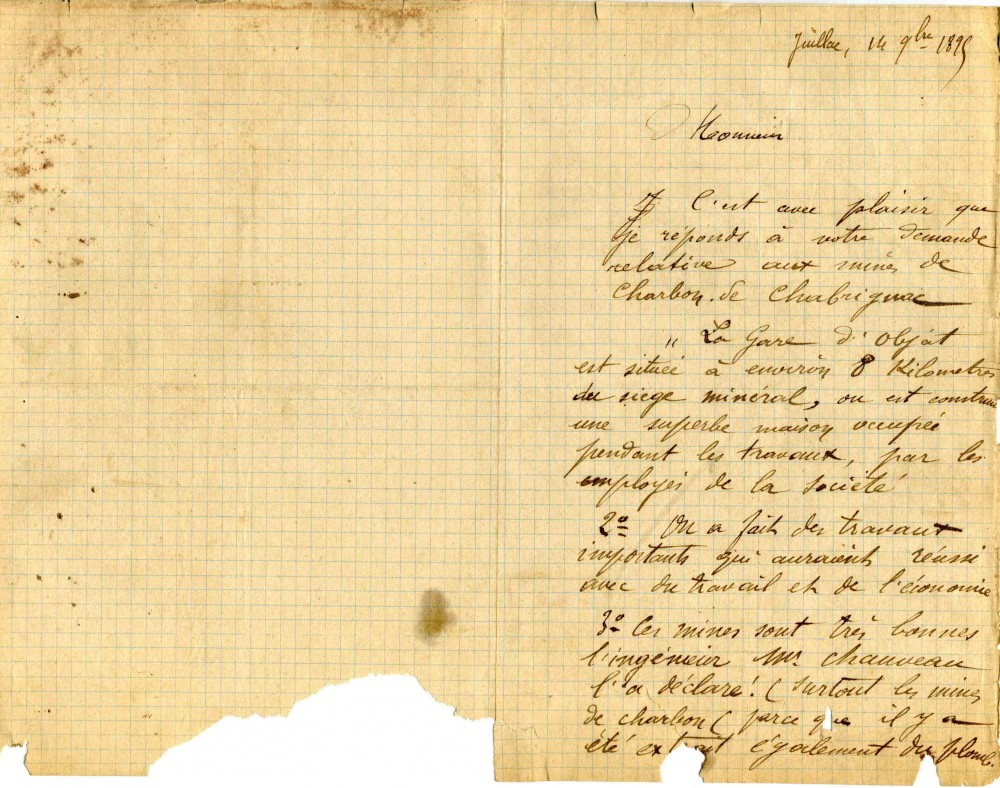 Juillac, 14 9bre 1895
Monsieur
C'est avec plaisir que
je réponds à votre demande
relative aux mines de
Charbon de Chabrignac
" La Gare d'objat
est située à environ 8 Kilometres
du siege minéral, ou est construi
une superbe maison occupée
pendant les travaux, par les
employés de la société
2º On a fait des travaux
importants qui auraient réussi
avec du travail et de l'économie
3º Ces mines sont très bonnes
l'ingénieur Mr Chauveau
l'a déclaré! ( surtout les mines
de charbon ( parce que il y a
été extrait également du plomb.